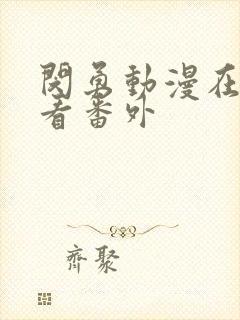 閃勇動漫在
看番外
齊聚